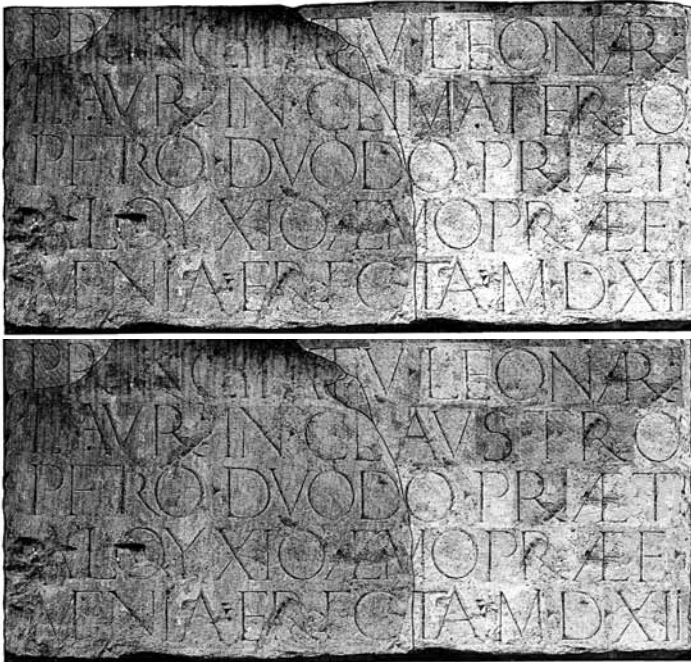 PRINCIPATV·LEONAR
LAVR·IN CLIMATERIO
PETRO·DVODO·PRÆT
ALOYXIO ÆMO PRÆF
MENIA·ERECTA·M·D·XII
PRINCIPATV·LEONAR
LAVR·IN CLAVSTRO
PETRO·DVODO·PRÆT
ALOYXIO ÆMO PRÆF
MENIA·ERECTA·M·D·XII